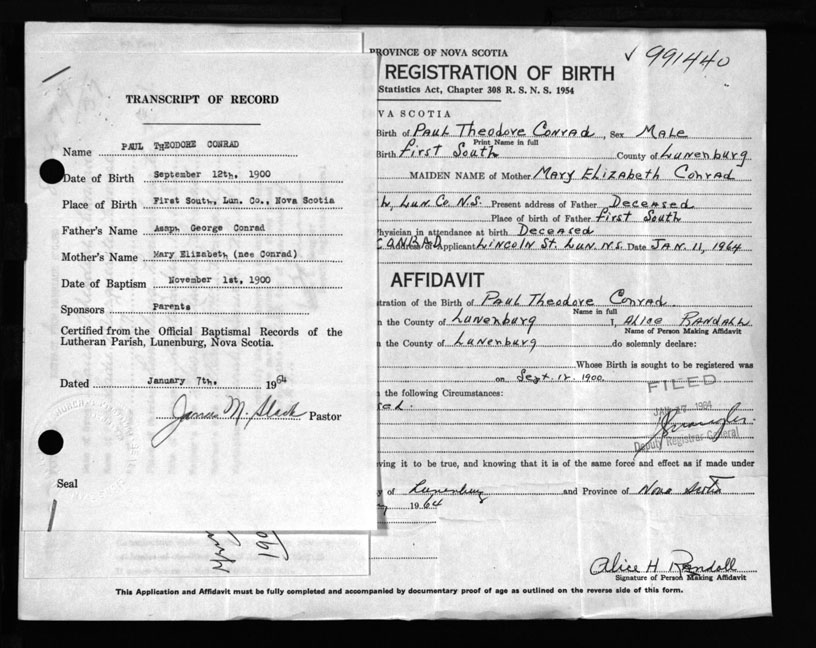 TRANSCRIPT OF RECORD
Name PAUL THEODORE CONRAD
Date of Birth September 12th, 1900
Place of Birth First South, Lun. Co., Nova Scotia
Father's Name Asaph George Conrad
Mother's Name Mary Elizabeth (nee Conrad)
Date of Baptism November 1st, 1900
Sponsors Parents
Certified from the Official Baptismal Records of the
Lutheran Parish, Lunenburg, Nova Scotia.
Dated January 7th, 1964
James M. Slack Pastor
Seal
PROVINCE OF NOVA SCOTIA
991440
REGISTRATION OF BIRTH
Statistics Act, Chapter 308 R. S. N. S. 1954
VA SCOTIA
Birth of Paul Theodore Conrad, Sex Male
Print Name in full
Birth First South County of Lunenburg
MAIDEN NAME of Mother Mary Elizabeth Conrad
h, Lun. Co. N.S. Present address of Father Deceased
Place of birth of Father First South
hysician in attendance at birth Deceased
CONRAD Address of Applicant Lincoln St. Lun. N.S. Date Jan. 11, 1964
AFFIDAVIT
tration of the Birth of Paul Theodore Conrad
Name in full
n the County of Lunenburg I, Alice Randall
Name of Person Making Affidavit
n the County of Lunenburg do solemnly declare:
Whose Birth is sought to be registered was
on Sept. 12. 1900.
n the following Circumstances:
FILED
sed.
JAN 17 1964
Deputy Registrar General
ving it to be true, and knowing that it is of the same force and effect as if made under
y of Lunenburg and Province of Nova Scotia
y 1964
Alice H Randall
Signature of Person Making Affidavit
This Application and Affidavit must be fully completed and accompanied by documentary proof of age as outlined on the reverse side of this form.